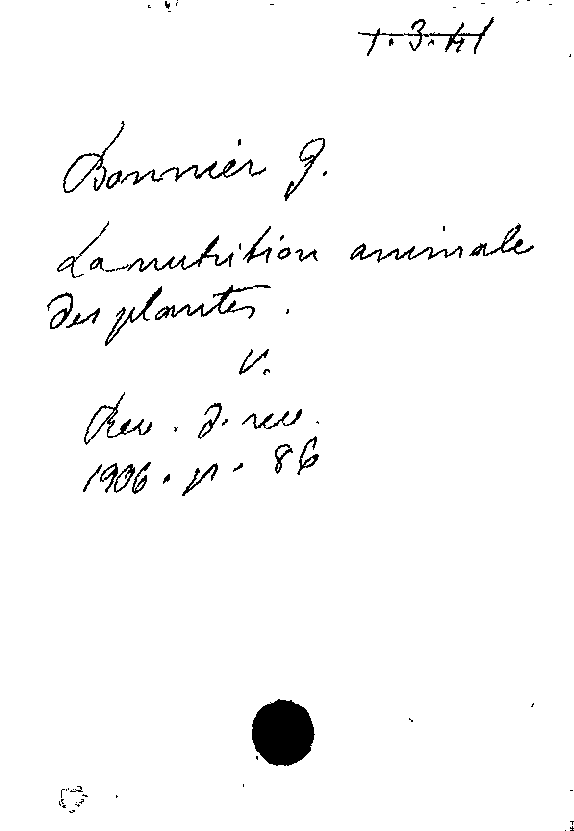 1.3.41
Bonnier G.
La nutrition animale
des plantes.
V.
Rev. d. rev.
1906. p. 86